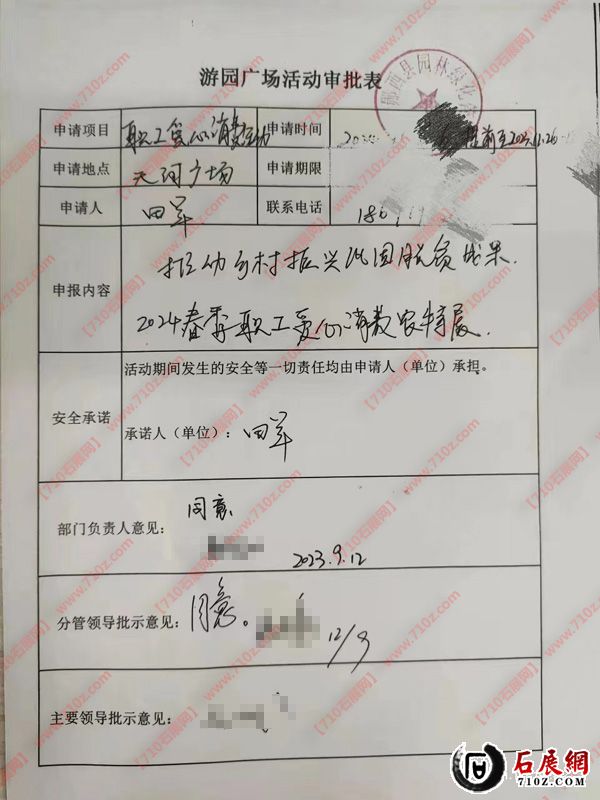 游园广场活动审批表
郧西县园林绿化
申请项目 职工爱心消费活动 申请时间
申请地点 天河广场 申请期限
申请人 田军 联系电话 186
申报内容 推动乡村振兴巩固脱贫成果.
2024春季职工爱心消费农特展
安全承诺 活动期间发生的安全等一切责任均由申请人（单位）承担。
承诺人（单位）: 田军
部门负责人意见: 同意.
2023.9.12
分管领导批示意见: 同意。
12/9
主要领导批示意见:
石展網
710Z.COM
【710石展网】www.710z.com